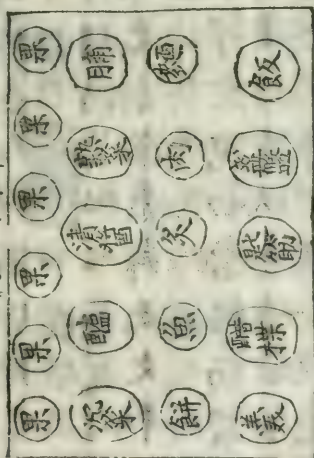 飯 盞盤 匙筯 醋楪 羹
麪 肉 炙 魚 餠
脯 熟菜 清醬 醢 沉菜
果 果 果 果 果 果